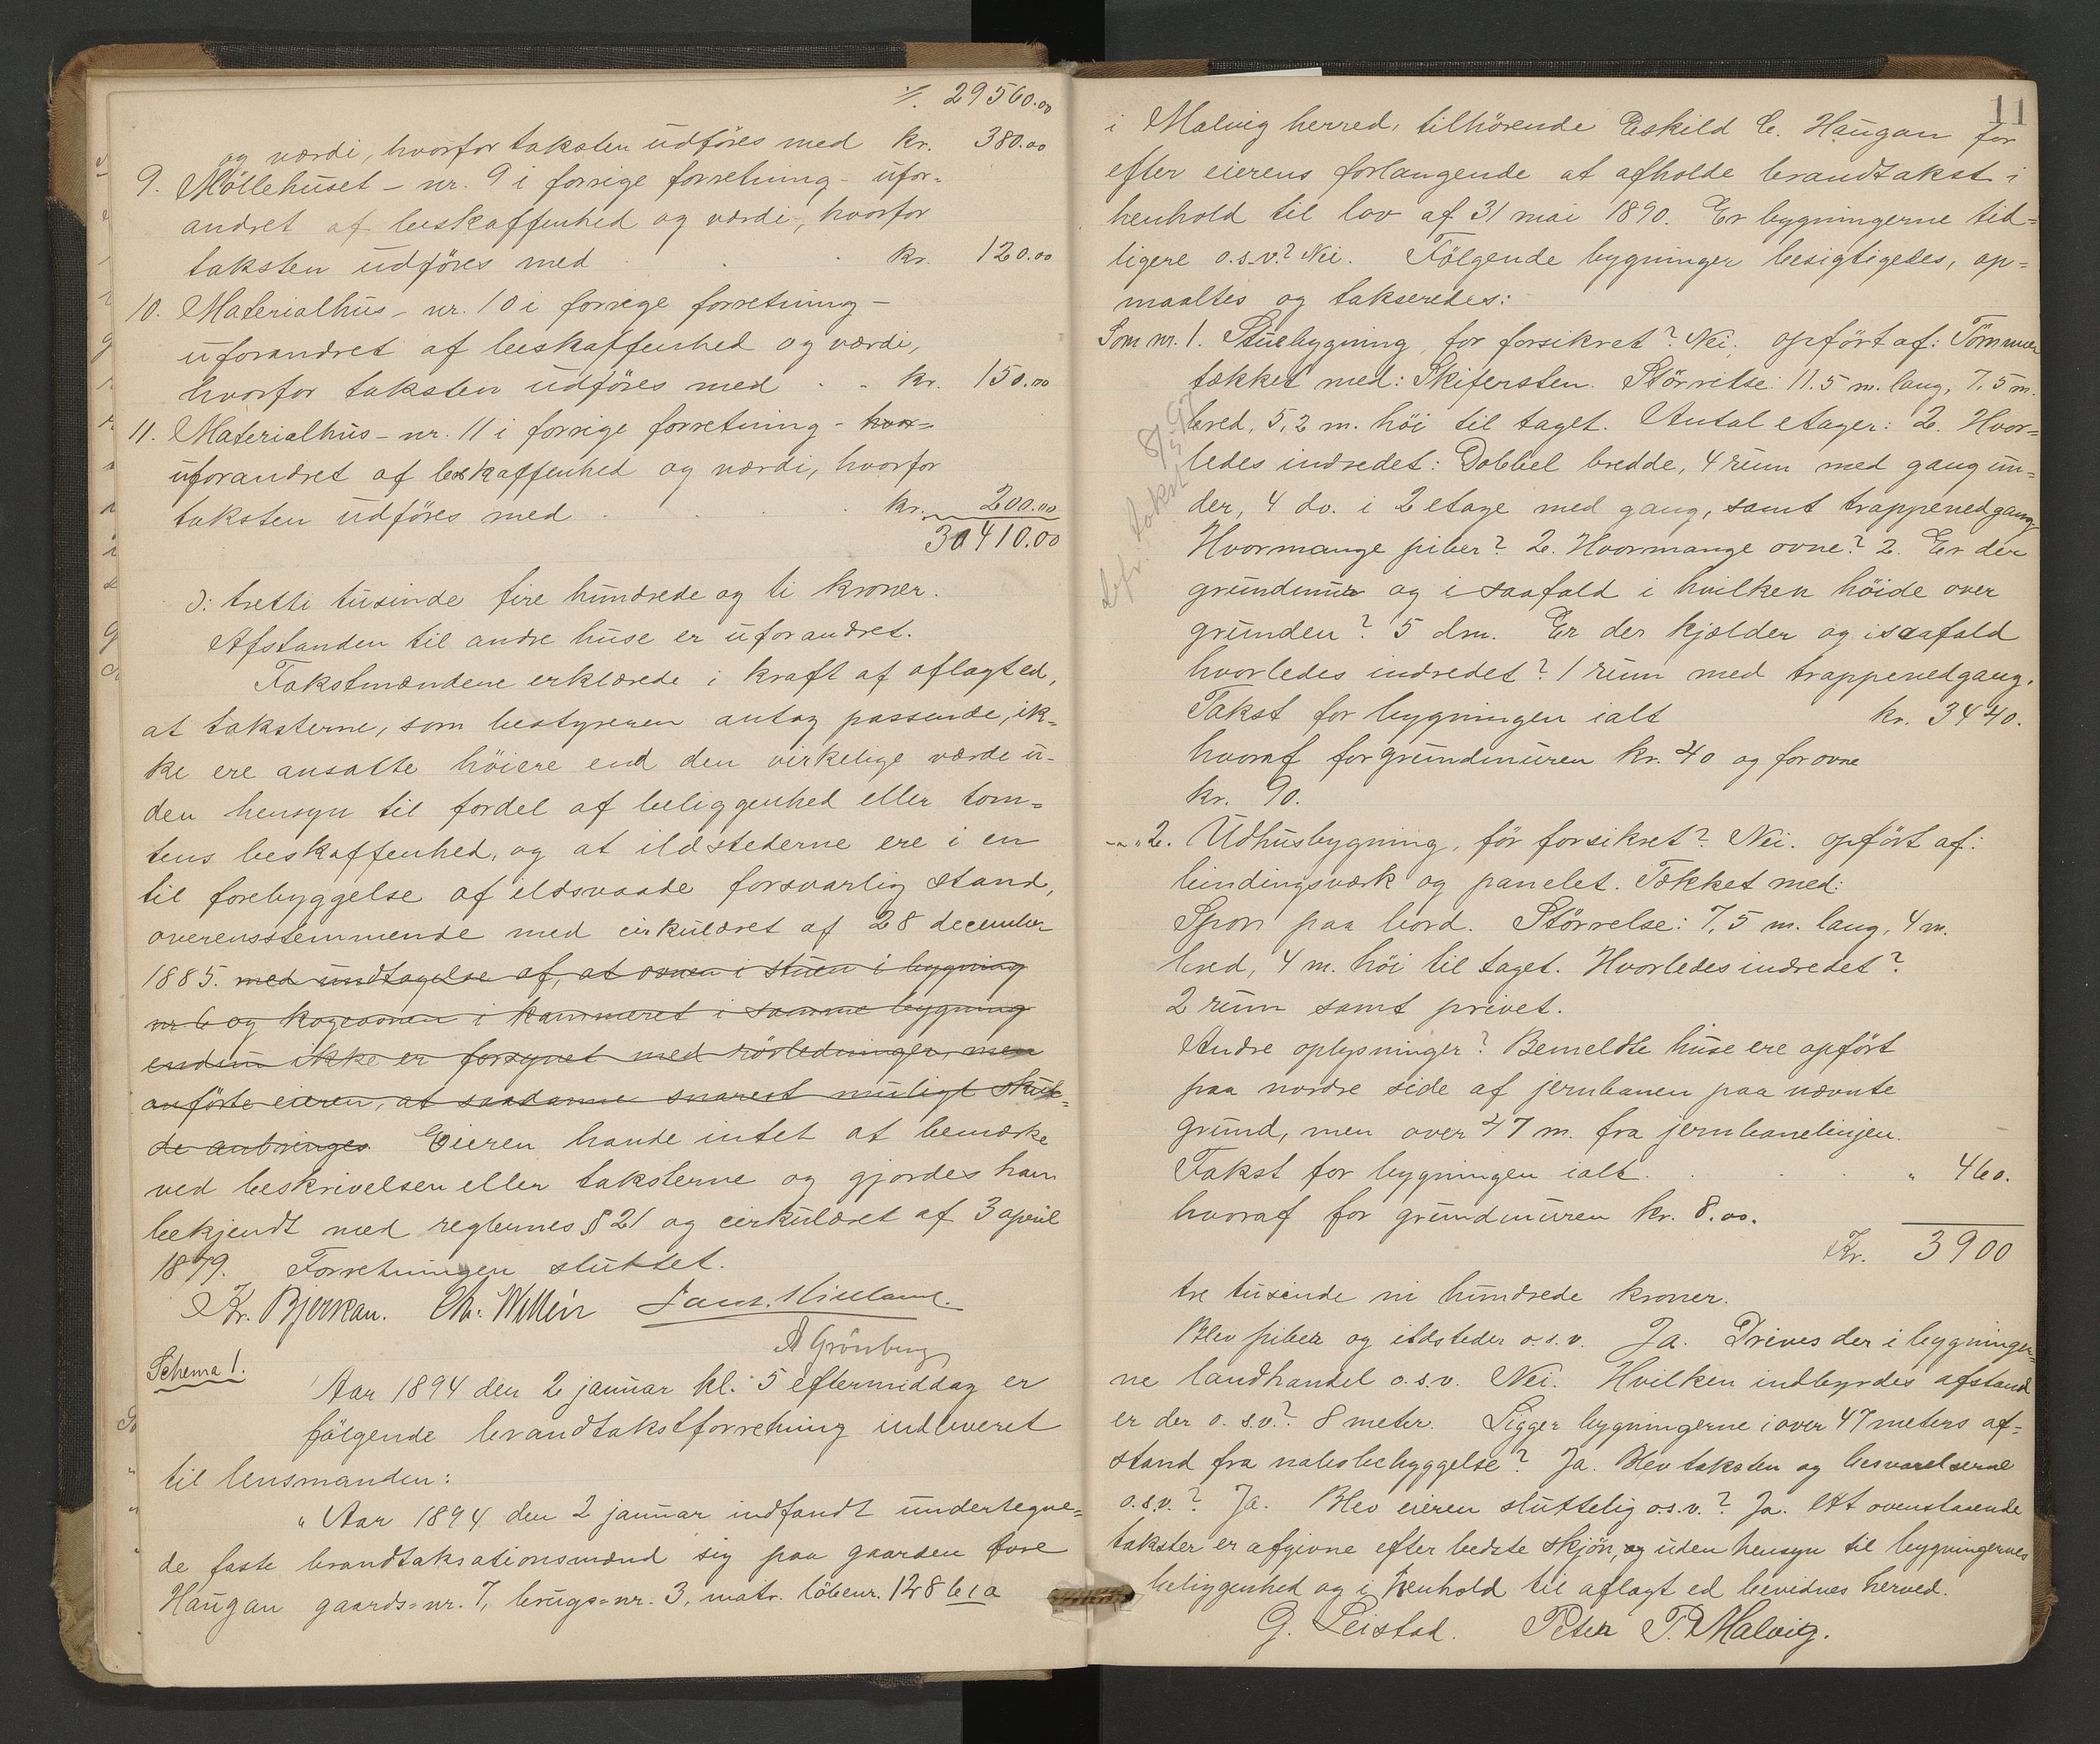 % 29560.00
og værdi, hvorfor taksten udföres med kr. 380.00
9. Möllehuset - nr. 9 i forrige forretning - ufor=
andret af beskaffenhed og værdi, hvorfor
taksten udföres med kr. 120.00
10. Materialhus - nr. 10 i forrige forretning -
uforandret af beskaffenhed og værdi,
hvorfor taksten udföres med kr. 150.00
11. Materialhus - nr. 11 i forrige forretning - hvor=
uforandret af beskaffenhed og værdi, hvorfor
taksten udföres med kr. 200.00
30410.00
ɔ: tretti tusinde fire hundrede og ti kroner.
Afstanden til andre huse er uforandret.
Takstmændene erklærede i kraft af aflagt ed,
at taksterne, som bestyreren antog passende, ik=
ke ere ansatte höiere end den virkelige værde u-
den hensyn til fordel af beliggenhed eller tom=
tens beskaffenhed, og at ildstederne ere i en
til forebyggelse af ildsvaade forsvarlig stand,
overensstemmende med cirkulæret af 28 december
1885. med undtagelse af, at ovnen i stuen i bygning
nr 6 og kogeovnen i kammeret i samme bygning
endnu ikke er forsynet med rörledninger, men
anförte eieren, at saadanne snarest muligt skul=
de anbringes. Eieren havde intet at bemærke
ved beskrivelsen eller taksterne og gjordes han
bekjendt med reglernes § 21 og cirkulæret af 3 april
1879. Forretningen sluttet.
Kr. Bjerkan. Chr. Willén
A Grönberg
Schema 1.
Aar 1894 den 2 januar kl. 5 eftermiddag er
følgende brandtakstforretning indleveret
til lensmanden:
"Aar 1894 den 2 januar indfandt undertegne=
de faste brandtaksationsmænd sig paa gaarden
Haugan gaards=nr. 7, brugs=nr. 3, matr. löbenr. 128 b 1 a
11
i Malvig herred, tilhörende Eskild C. Haugan for
efter eierens forlangende at afholde brandtakst i
henhold til lov af 31 mai 1890. Er bygningerne tid=
ligere o.s.v? Nei. Fölgende bygninger besigtigedes, op=
maaltes og takseredes:
Som nr. 1. Stuebygning, för forsikret? Nei, opfört af: Tömmer
tækket med: Skifersten. Störrelse: 11.5 m. lang, 7,5 m.
bred, 5,2 m. höi til taget. Antal etager: 2. Hvor=
ledes indredet: Dobbel bredde, 4 rum med gang un=
der, 4 do. i 2 etage med gang, samt trappenedgang
Hvormange piber? 2. Hvormange ovne? 2. Er der
grundmur og i saafald i hvilken höide over
grunden? 5 dm. Er der kjælder og i saafald
hvorledes indredet? 1 rum med trappenedgang.
Takst for bygningen ialt kr. 3440.
hvoraf for grundmuren kr. 40 og for ovne
kr. 90.
-"- 2. Udhusbygning, för forsikret? Nei. opfört af:
bindingsværk og panelet. Tækket med:
Spon paa bord. Störrelse: 7,5 m. lang, 4 m.
bred, 4 m. höi til taget. Hvorledes indredet?
2 rum samt privet.
Andre oplysninger? Bemeldte huse ere opfört
paa nordre side af jernbanen paa nævnte
grund, men over 47 m. fra jernbanelinjen.
Takst for bygningen ialt. " 460.
hvoraf for grundmuren kr. 8.00.
Kr. 3900
tre tusinde ni hundrede kroner.
Blev piber og ildsteder o.s.v. Ja. Drives der i bygninger=
ne landhandel o.s.v. Nei. Hvilken indbyrdes afstand
er der o.s.v.? 8 meter. Ligger bygningerne i over 47 meters af=
stand fra nabobebyggelse? Ja. Blev taksten og besvarelserne
o.s.v.? Ja. Blev eieren sluttelig o.s.v.? Ja. At ovenstaaende
takster er afgivne efter bedste skjön, og uden hensyn til bygningernes
beliggenhed og i henhold til aflagt ed bevidnes herved.
G. Leistad. Peter P. Malvig.